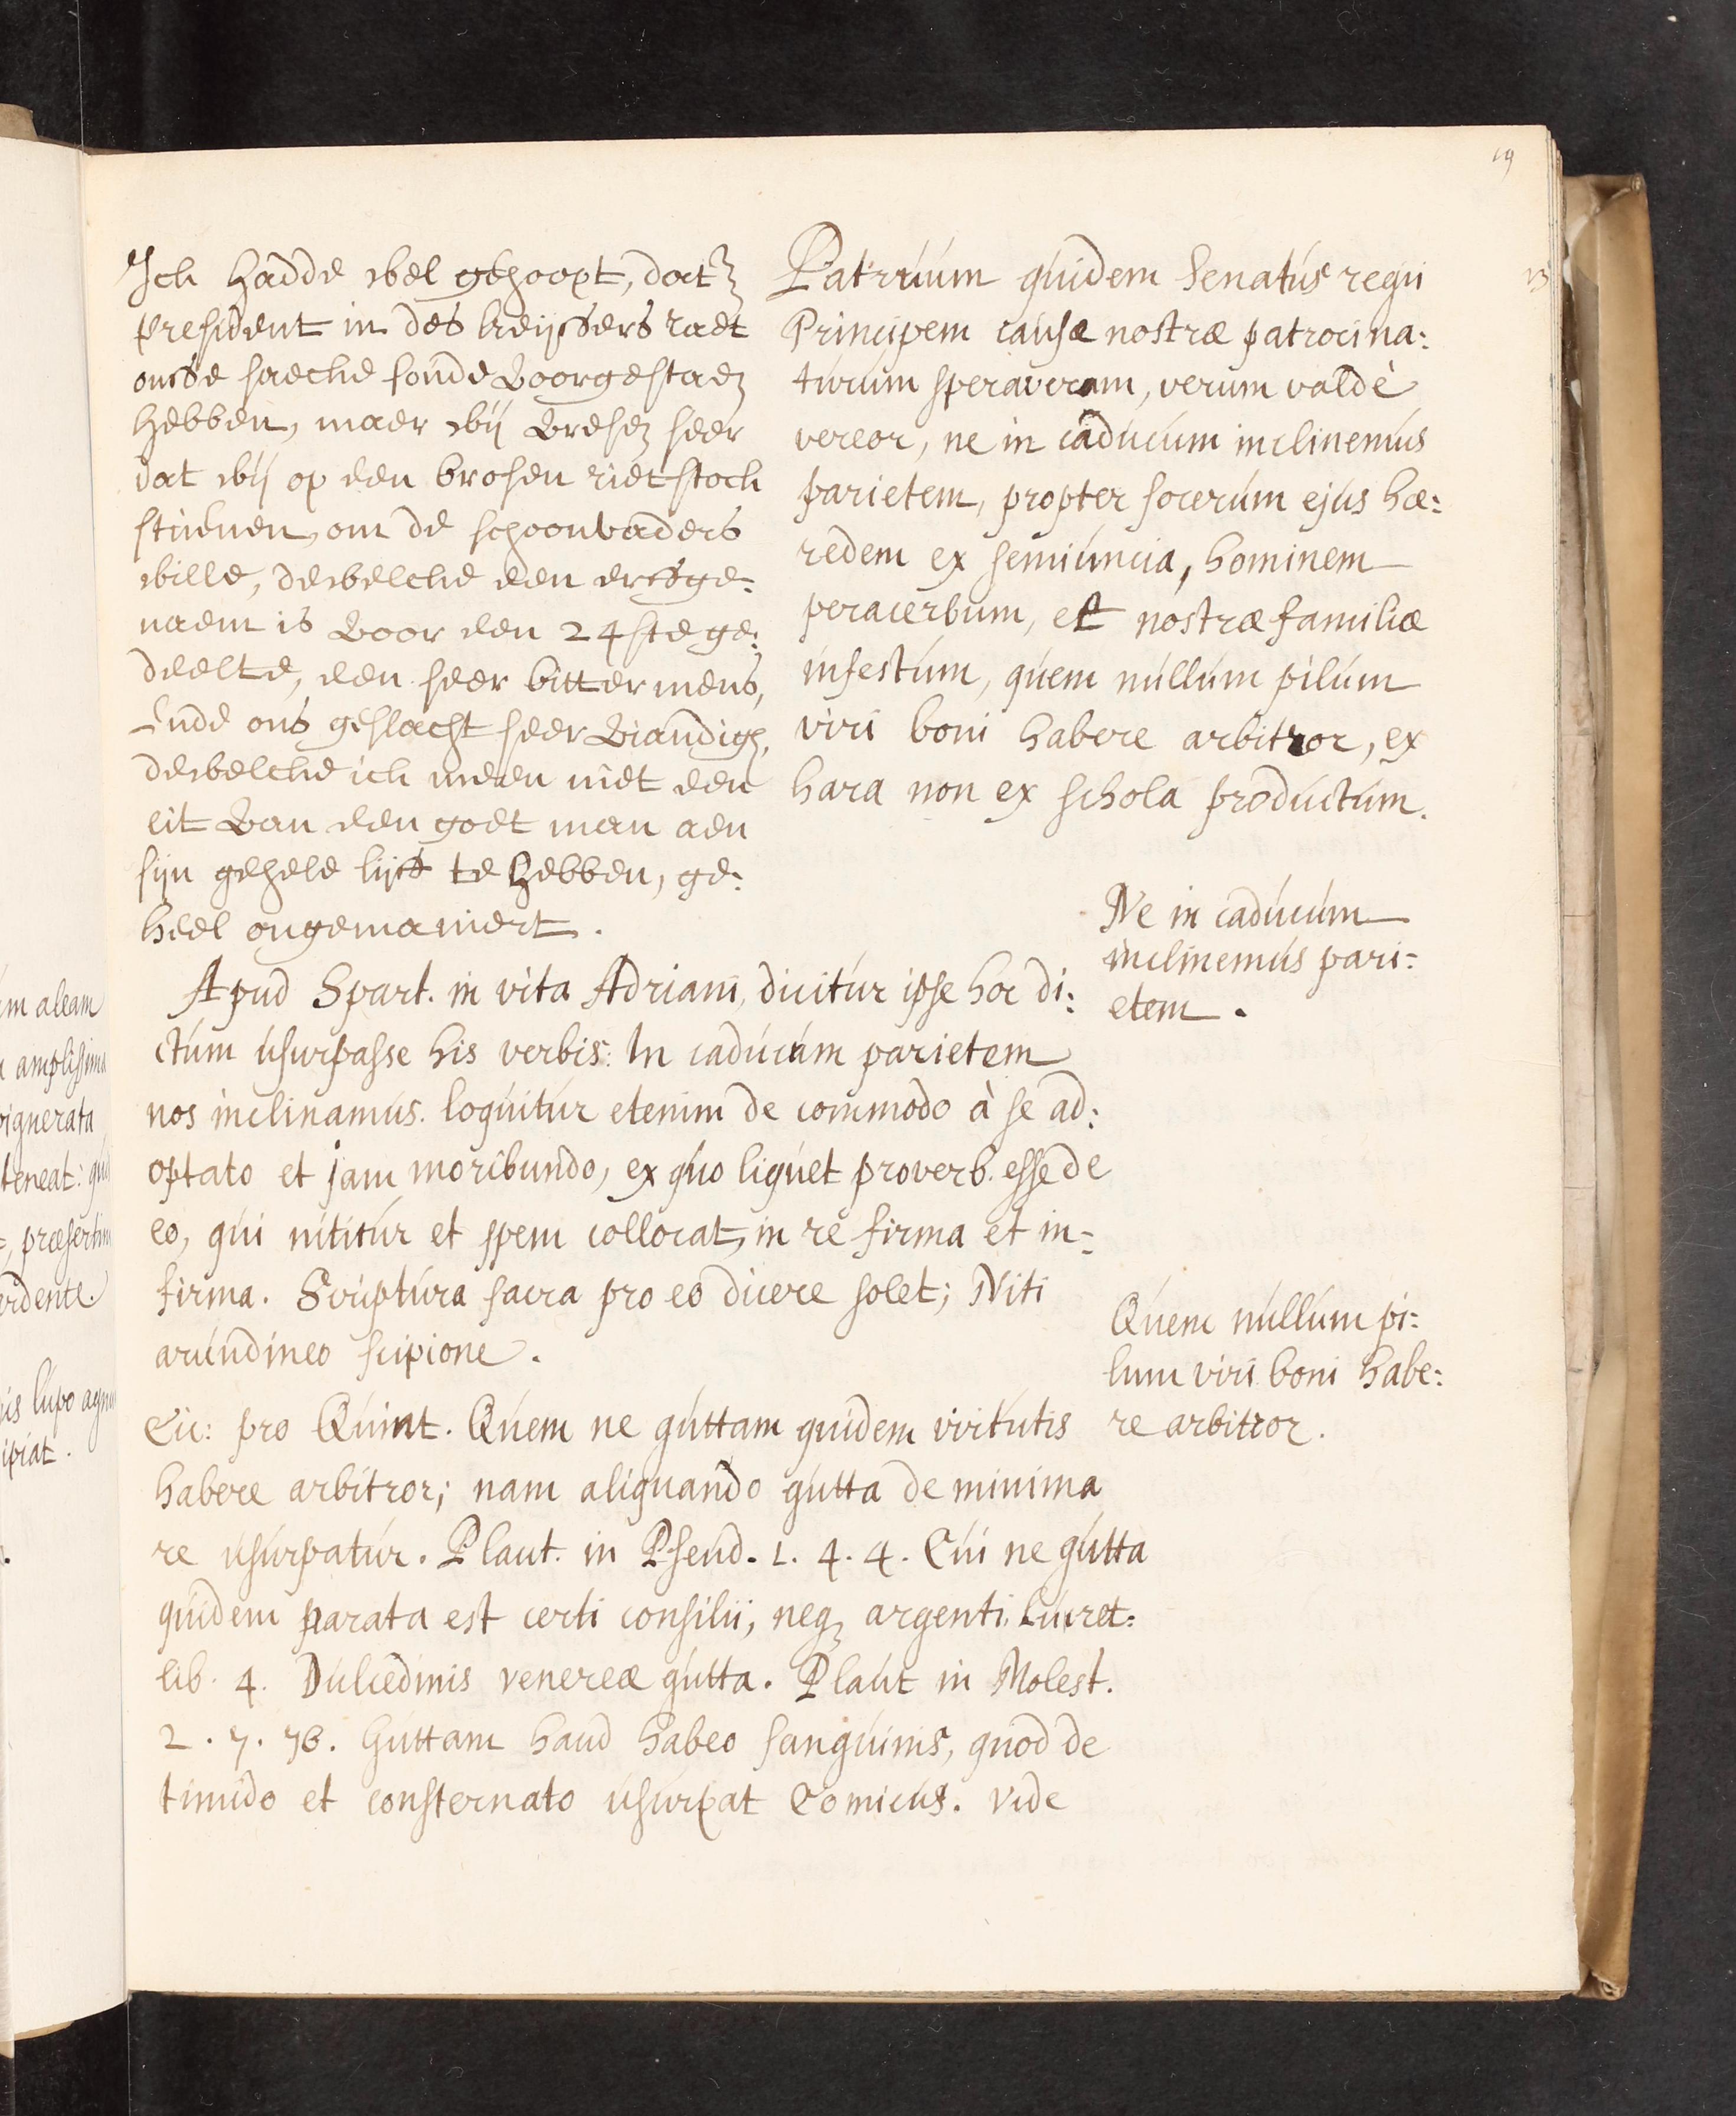 19
Ich hadde wel gehoopt, dat
president in des keijsers raet
onse saeche soude voorgestaen
hebben, maer wij vresen seer
dat wij op een brosen rietstock
stuenen, om de schoonvaders
wille, dewelcke een erfge:
naem is voor een 24ste ge:
deelte, een seer bitter mens,
Ende ons geslacht seer viandigh,
dewelcke ich meen niet een
eit van een goet man aen
sijn gehele lijff te hebben, ge:
heel ongemaniert.
Patruum quidem Senatus regii
13
Principem causæ nostræ patrocina:
turum speraveram, verum valdè
vereor, ne in caducum inclinemus
parietem, propter socerum ejus hæ:
redem ex semiuncia, hominem
peracerbum, et nostræ familiæ
infestum, quem nullum pilum
viri boni habere arbitror, ex
hara non ex schola productum.
Ne in caducum
inclinemus pari:
etem.
Apud Spart. in vita Adriani, dicitur ipse hoc di:
ctum usurpasse his verbis: In caducum parietem
nos inclinamus. loquitur etenim de commodo à se ad:
optato et jam moribundo, ex quo liquet proverb. esse de
eo, qui nititur et spem collocat, in re firma et in:
firma. Scriptura sacra pro eo dicere solet; Niti
arundineo scipione.
Quem nullum pi:
lum viri boni habe:
re arbitror.
Cic: pro Quint. Quem ne guttam quidem virtutis
habere arbitror; nam aliquando gutta de minima
re usurpatur. Plaut. in Pseud. 1. 4. 4. Cui ne gutta
quidem parata est certi consilii, neq, argenti. Lucret:
lib. 4. Dulcedinis venereæ gutta. Plaut in Molest.
2. 7. 76. Guttam haud habeo sanguinis, quod de
timido et consternato usurpat Comicus. Vide
m aleam
amplissima
pignerata
teneat: quid
præsertim
ardente.
lupo agnu
ipiat.